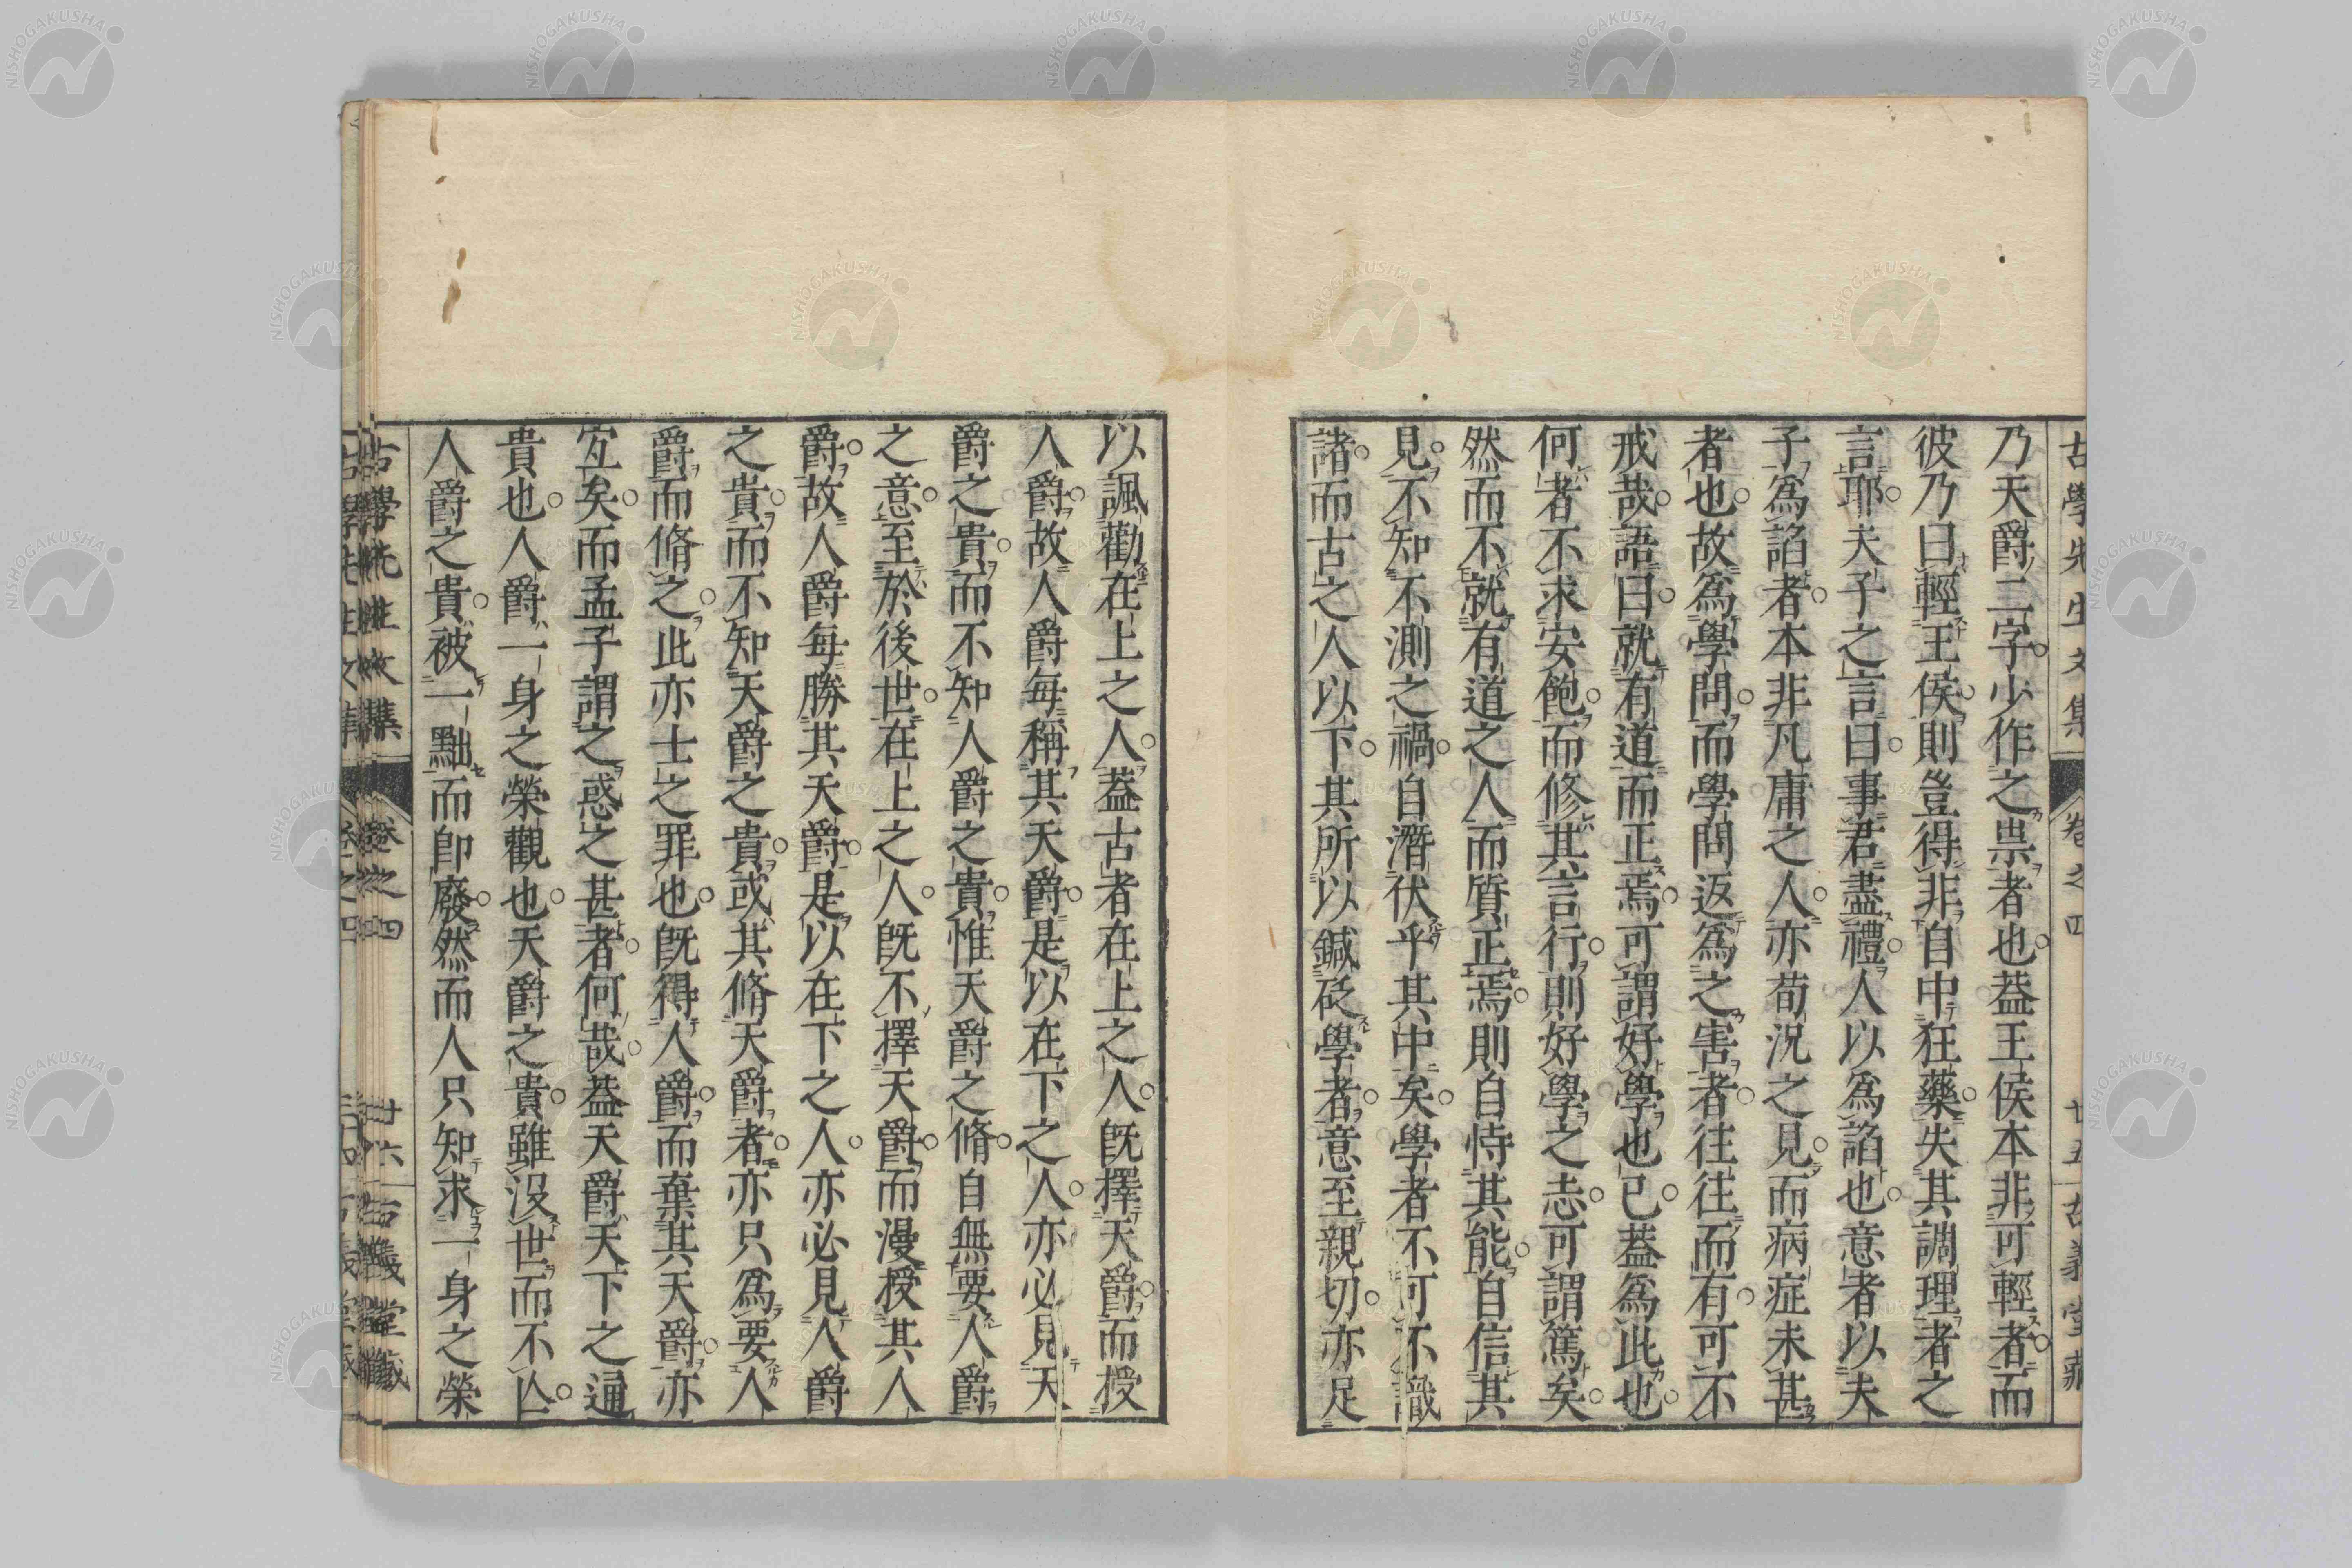 古學先生文集　卷之四　廿五　古義堂藏
乃天爵二字少作之祟者也葢王侯本非可輕者而
彼乃曰輕王侯則豈得非自中狂藥失其調理者之
言耶夫子之言曰事君盡禮人以爲諂也意者以夫
子爲諂者本非凡庸之人亦荀況之見而病症未甚
者也故爲學問而學問返爲之害者往往而有可不
戒哉語曰就有道而正焉可謂好學也已葢爲此也
何者不求安飽而修其言行則好學之志可謂篤矣
然而不就有道之人而質正焉則自恃其能自信其
見不知不測之禍自潛伏乎其中矣學者不可不識
諸而古之人以下其所以鍼砭學者意至親切亦足
以諷勸在上之人葢古者在上之人旣擇天爵而授
人爵故人爵每稱其天爵是以在下之人亦必見天
爵之貴而不知人爵之貴惟天爵之脩自無要人爵
之意至於後世在上之人旣不擇天爵而漫授其人
爵故人爵每勝其天爵是以在下之人亦必見人爵
之貴而不知天爵之貴或其脩天爵者亦只爲要人
爵而脩之此亦士之罪也旣得人爵而棄其天爵亦
宐矣而孟子謂之惑之甚者何哉葢天爵天下之通
貴也人爵一身之榮觀也天爵之貴雖沒世而不亾
人爵之貴被一黜而卽廢然而人只知求一身之榮
古學先生文集　卷之四　廿六　古義堂藏